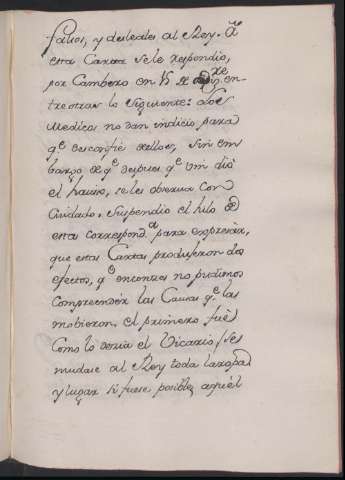 falsos, y desleales al Rey. A
esta Carta se le respondio,
por Cambero en 17 de xre, en-
tre otras lo siguiente: Los
Medicos no dan indicio para
qe desconfie dellos, sin em
bargo de qe despues qe Vm diò
el haviso, se les observa con
Cuidado. Suspendio el hilo de
esta correspond.a para expresar,
que estas Cartas produseron dos
efectos, qe entonces no pudimos
comprender las Causas qe las
mobieron. el primero fuè
Como lo decia el Vicario, se
mudase al Rey toda la ropa
y lugar si fuese posible, aquèl